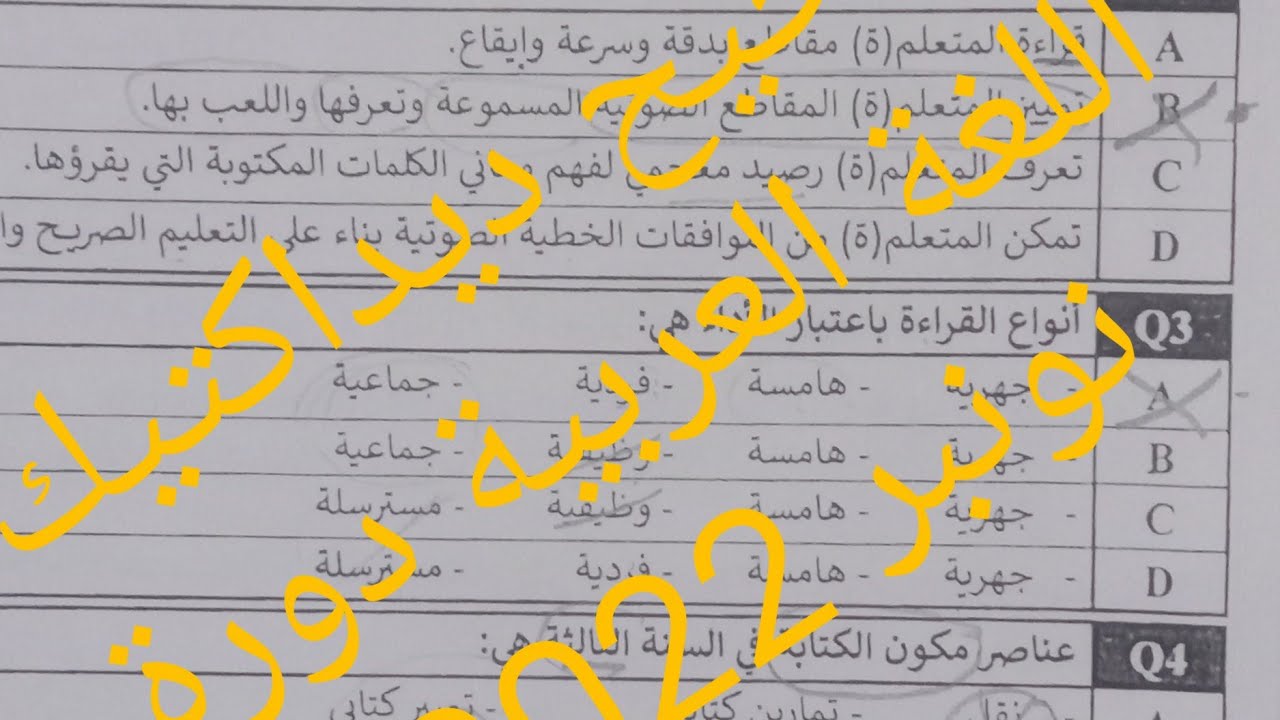 A قراءة المتعلم(ة) مقاطع بدقة وسرعة وإيقاع.
B تمييز المتعلم(ة) المقاطع الصوتية المسموعة وتعرفها واللعب بها.
C تعرف المتعلم(ة) رصيد معجمي لفهم معاني الكلمات المكتوبة التي يقرؤها.
D تمكن المتعلم(ة) من التوافقات الخطية الصوتية بناء على التعليم الصريح
Q3 أنواع القراءة باعتبار الأداء هي:
A - جهرية - هامسة - فردية - جماعية
B - جهرية - هامسة - وظيفية - جماعية
C - جهرية - هامسة - وظيفية - مسترسلة
D - جهرية - هامسة - فردية - مسترسلة
Q4 عناصر مكون الكتابة في السنة الثالثة هي:
A - نقل - تمارين - تعبير كتابي
ديداكتيك
اللغة العربية دورة
نونبر 2022